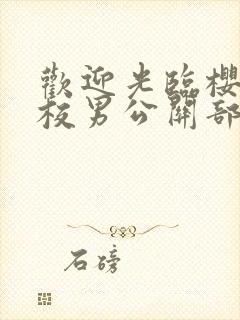 歡迎光臨櫻
板男公關部
石磅